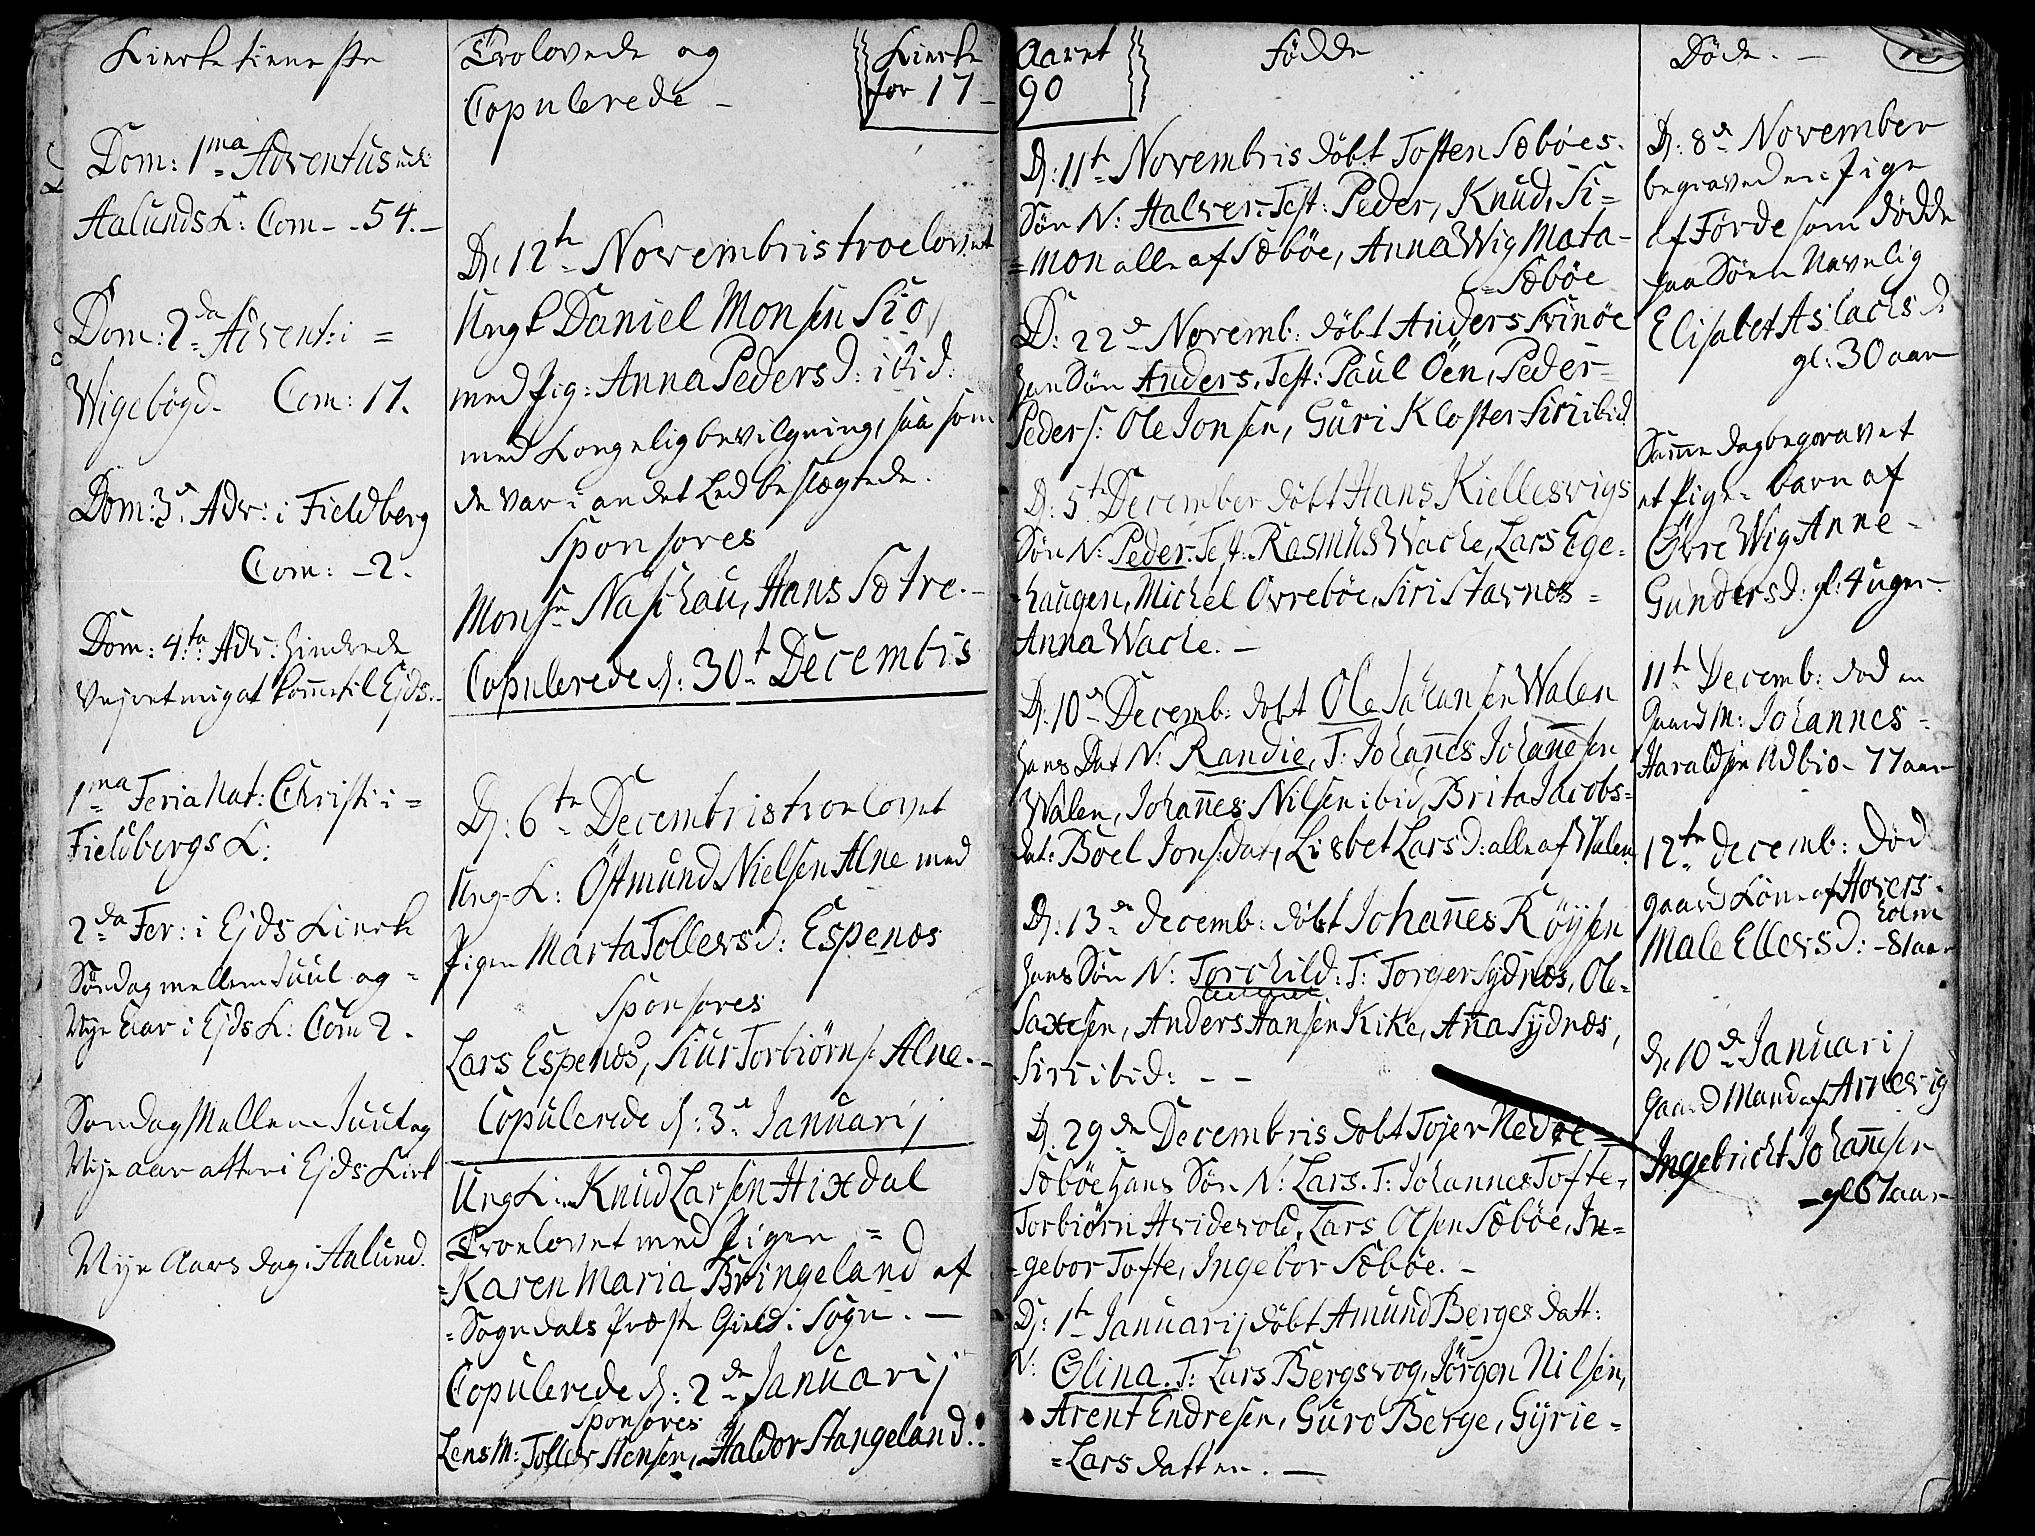 Kierketieneste
Dom: 1ma Adventus udi
Aalunds K: Com - - 54. -
Dom: 2da Advent: i =
Wigebögd. Com: 17.
Dom: 3de Adv: i Fieldberg
Com: - 2.
Dom: 4ta Adv: hindrede
Vejret mig at komme til Ejds. -
1ma Feria Nat: Christi i =
Fieldbergs K:
2da Fer: i Ejds Kierke
Söndag mellem Juul og =
Nye Aar i Ejds K: Com 2.
Söndag Mellem Juul og
Nye aar atter i Ejds Kirk
Nye Aars dag i Aalund.
Trolovede og
Copulerede -
D: 12te Novembris troelovet
Ungk Daniel Monsen Sio,
med Pig: Anna Peders D: ibid:
med Kongelig bevilgning, saa som
de var i andet Led beslægtede.
Sponsores
Monsr Naschau, Hans Sætre. -
Copulerede d: 30t Decembris
D: 6te Decembris troelovet
Ung-K: Östmund Nielsen Alne med
Pigen Marta Tollevs D: Espenæs
Sponsores
Lars Espenæs, Siur Torbiörns: Alne. -
Copulerede d: 3de Januarij
Ung K: Knud Larsen Hixdal
Troelovet med Pigen =
= Karen Maria Bringeland af
= Sogndals Præste Gield i Sogn. -
Copulerede d: 2de Januarij
Sponsores
LensM: Tollev Stensen, Haldor Stangeland.
Kierke Aaret
for 17 - 90
Födde
D: 11te Novembris döbt Tosten Sæbøes.
Sön N: Halver. Test: Peder, Knud, Si =
= mon alle af Sæbøe, Anna Wig Mata -
= Sæbøe
D: 22de Novemb: döbt Anders Svinøe
hans Sön Anders, Test: Paul Öen, Peder =
Peders: Ole Jonsen, Guri Kloster Siri ibid
D: 5te December döbt Hans Kiellesvigs
Sön N: Peder. Test: Rasmus Wache, Lars Ege =
haugen, Michel Ovrebøe, Siri Stavnæs =
Anna Wache. -
D: 10de Decemb: döbt Ole Johansen Walen
hans Dat N: Randie, T: Johannes Johannesen
Walen, Johannes Nilsen ibid, Brita Jacobs =
dat: Böel Jons: dat, Lisbet Lars D: alle af Walen
D: 13de decemb: döbt Johannes Röysen
hans Sön N: Torchild: T: Torger Sydnæs, Ole =
Saxesen, Anders Hansen Kike, Anna Sydnæs,
Siri ibid: - -
D. 29de Decembris döbt Tojer Nedre =
Sæbøe hans Sön N: Lars. T: Johannes Tofte,
Torbiörn Hvidevold, Lars Olsen Sæbøe, In =
= gebor Tofte, Ingebor Sæbøe. -
D: 1te Januarij döbt Amund Berges Datt:
N: Olina. T: Lars Bergsvog, Jörgen Nilsen,
Arent Endresen, Guro Berge, Gyrie =
= Lars datter. -
Döde. -
D: 8de November
begraved en Pige
af Förde som dödde
paa Söen Navnlig
Elisabet Aslachs D
gl: 30 aar
Samme dag begravet
et Pige = barn af
Övre Wig Anne -
Gunders D: gl: 4 uger -
11te Decemb: död en
Gaard M: Johannes =
Haraldsen Udbio - 77 aar
12te decemb: Död
gaard Kone af Hovers -
holm
Male Ellevs D: - 81 aar
d. 10de Januarij
Gaard Mand af Arnevig
Ingebricht Johannesen
- gl 67 aar -